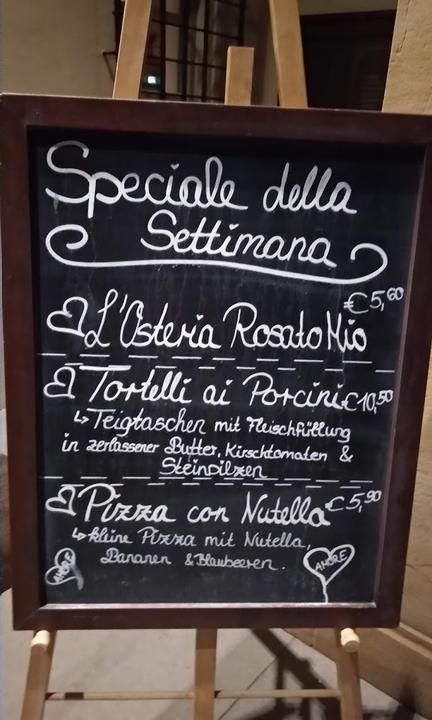 Speciale della
Settimana
€5,60
L'Osteria Rosato Mio
Tortelli ai Porcini €10,50
↳ Teigtaschen mit Fleischfüllung
in zerlassener Butter, Kirschtomaten &
Steinpilzen
Pizza con Nutella €5,90
↳ kleine Pizza mit Nutella,
Bananen & Blaubeeren.
AMORE
AMORE